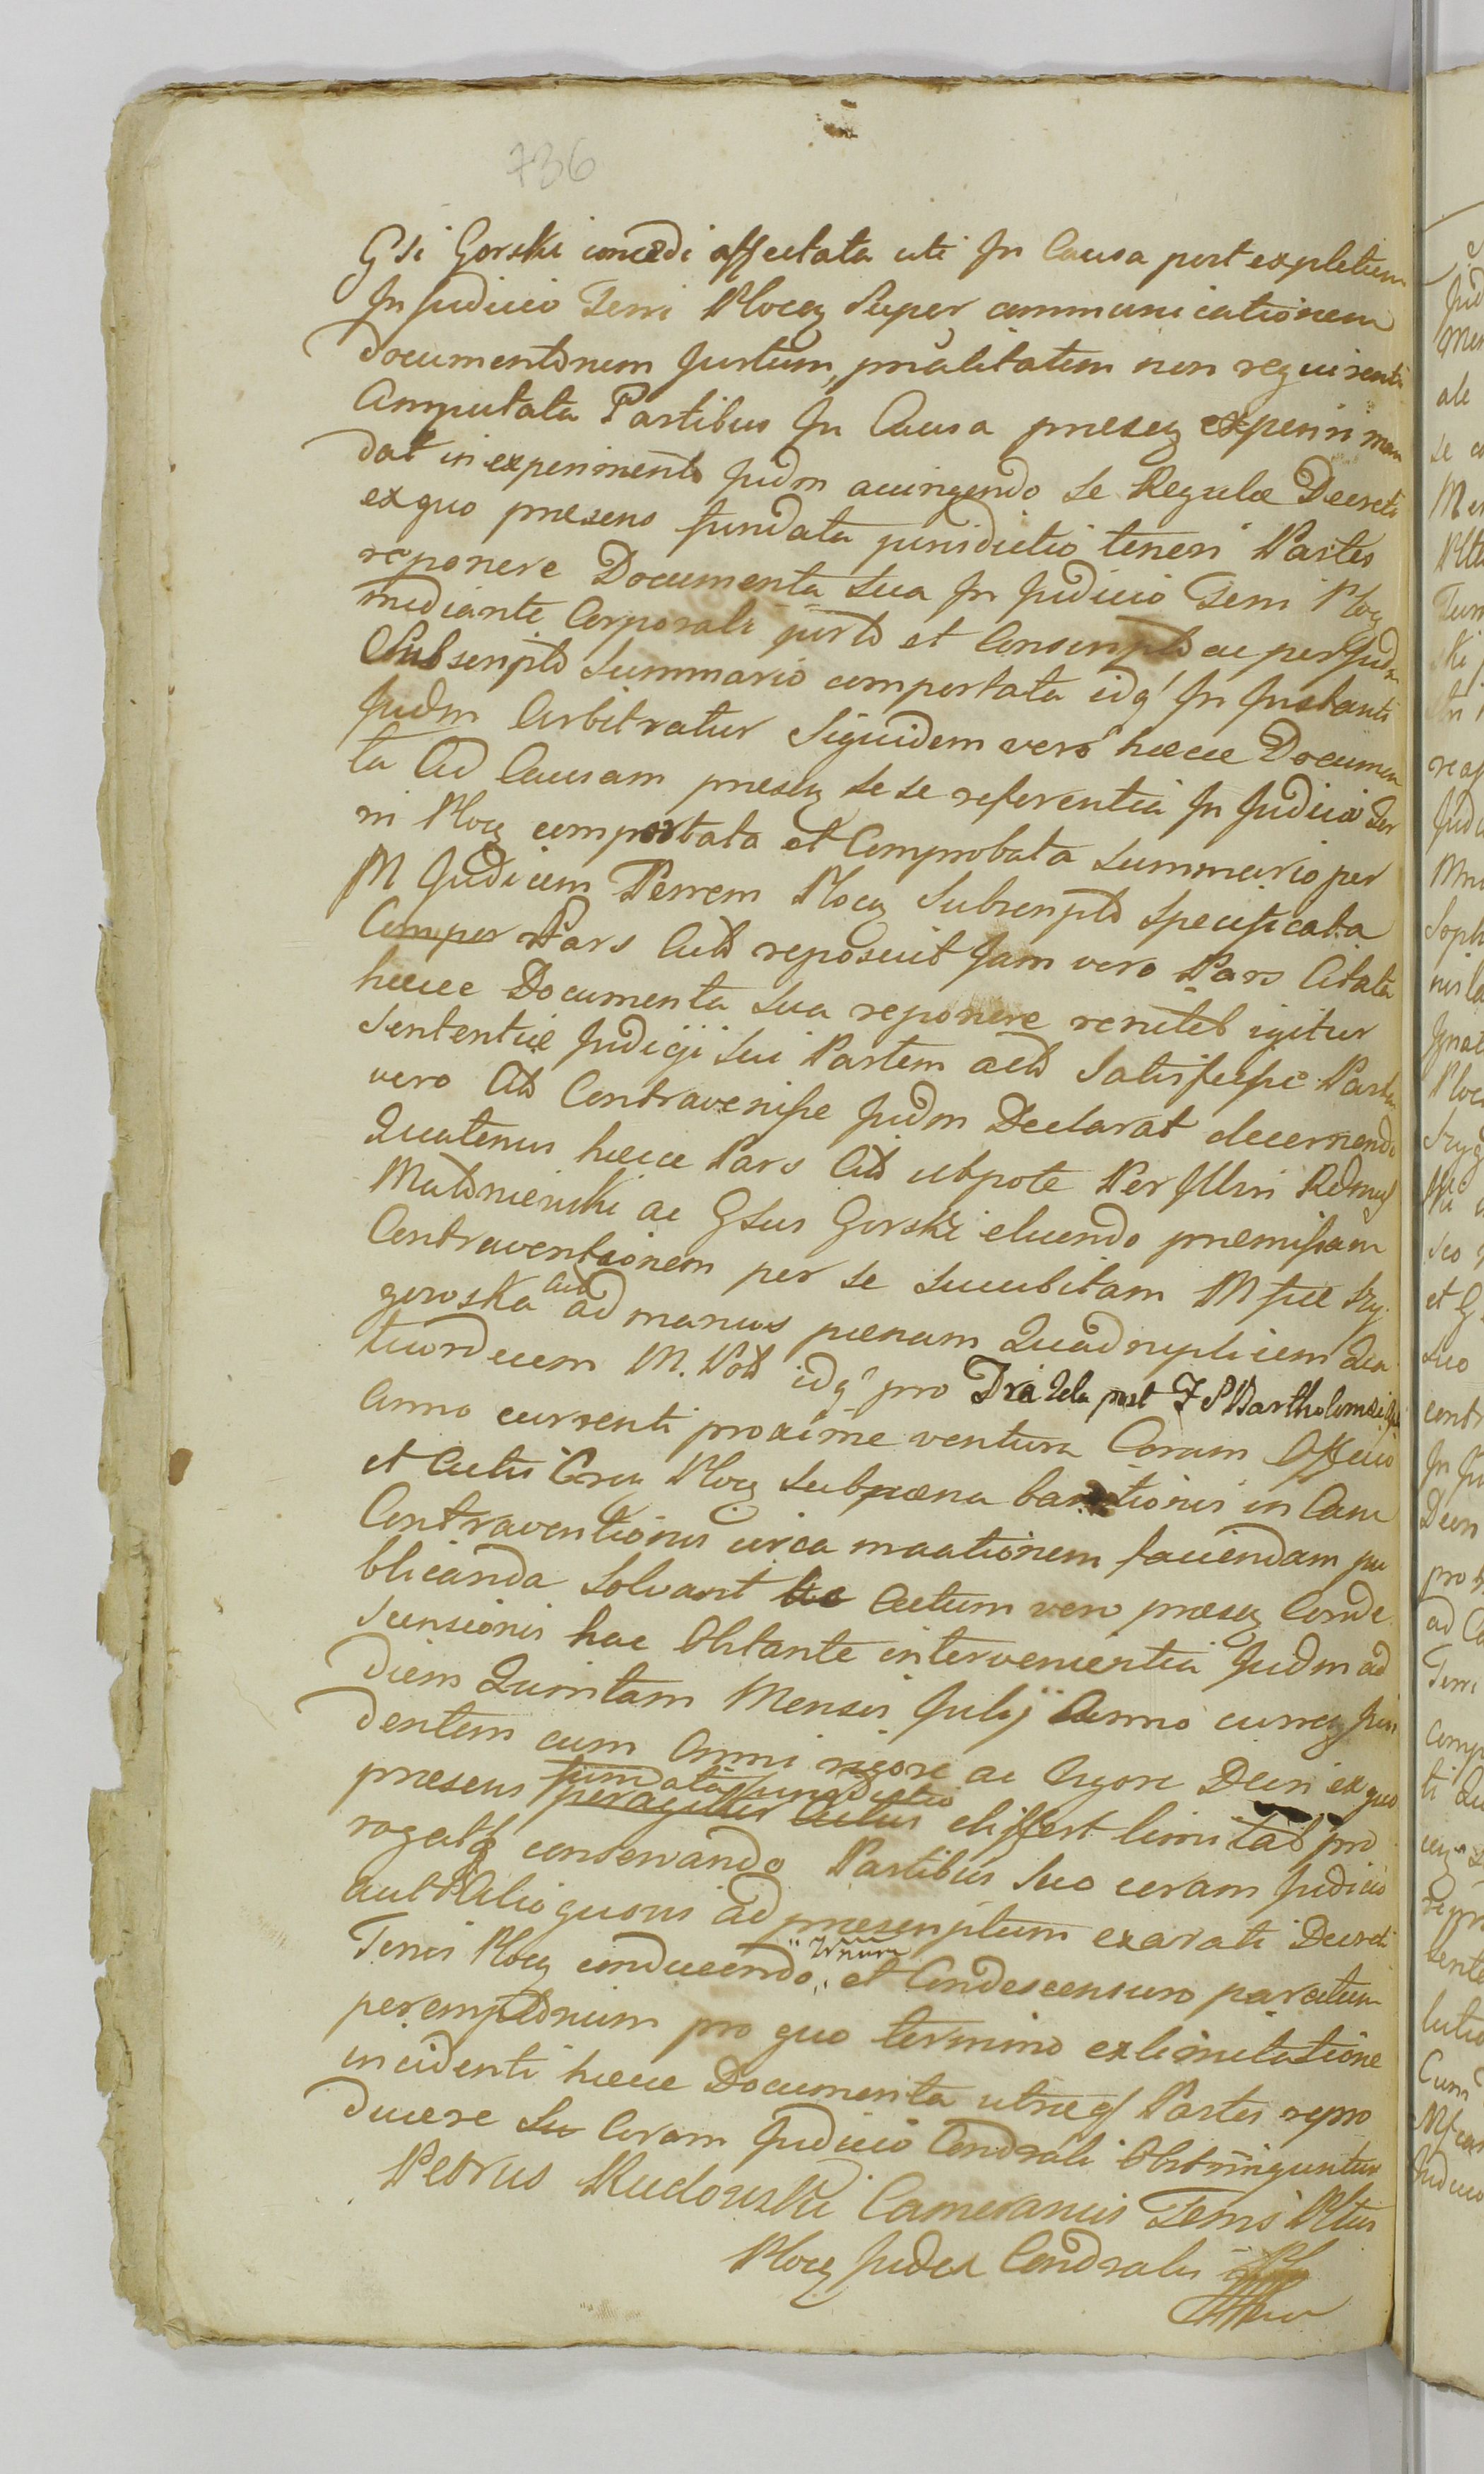 736
Gsi Gorski concedi affectata uti In Causa post expletum
In Judicio Terri Plocen Super communicationem
documentorum Jurtum, prialitatem non requirenti
Amputata Partibus In Causa presen experiri man
dat in experimento Judm accingendo se Regulæ Decreti
ex quo præsens fundata jurisdictio teneri Partes
reponere Documenta sua In Judicio Terri Plocen
mediante Corporali jurto et Conscripto ac per Judm
Subscripto Summario comportata idq In Instanti
Judm Arbitratur Siquidem vero hæcce Documen
ta Ad Causam presen sese referentia In Judicio Ter
ri Plocen comportata et Comprobata summario per
M Judicem Terrem Plocen Subscripto Specificata
Pars Acto reposuit Jam vero Pars Citata
hæcce Documenta sua reponere renitet igitur
Sententiæ Judicij sui Partem acto Satisfecisse Partem
vero Cito Contravenisse Judm Declarat decernendo
Quatenus hæcce Pars Cito utpote Per Illrin Redmus
Mutdnienski ac Gsus Gorski eluendo præmissam
Contraventionem per se succubitam Mfcæ Szy
goroska acto ad manus pænam Quadruplicem Qua
tuordecem M. Pol idq pro Dra post F S Bartholomæi
Anno currenti proxime ventura Coram Officio
et Actis Plocen Subpæna bannitionis in Casu
Contraventionis circa maationem faciendam pu
blicanda Solvant Actum vero præsen Conde
scensionis hac Obstante intervenientia Judm ad
diem Quintam Mensis Julij Anno curren
dentem cum Omni rigore ac Vigore Decri ex quo
præsens fundata jurisdictio peragitur Actus differt limitat pro
rogatq conservando Partibus suo coram Judicio
aut Alio quovis ad præscriptum exarati Decreti
Terris Plocen conducendo et Condescensuro paratum
peremptorium pro quo termino ex limitatione
incidenti hæcce Documenta utræq Partes repro
ducere Su Coram Judicio Condrali Obstringuntur
Petrus Rudowski Cameranius Terris Pltus
Plocen Judex Condralis